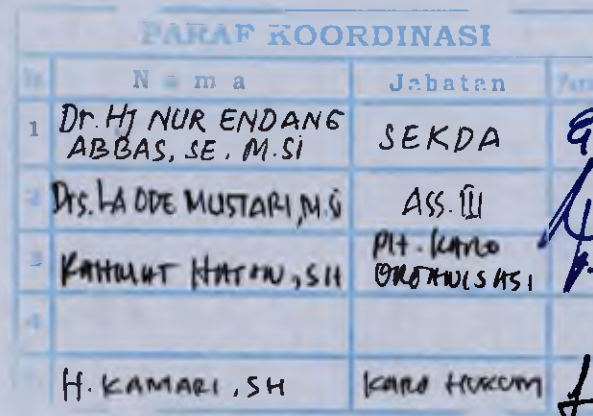 PARAF KOORDINASI
No Nama Jabatan Paraf
1 Dr. Hj NUR ENDANG ABBAS, SE. M.Si SEKDA
2 Drs. LA ODE MUSTARI, M.Si ASS. III
3 SH Plt. KARO ORGANISASI
4
H. KAMARI, SH KARO HUKUM